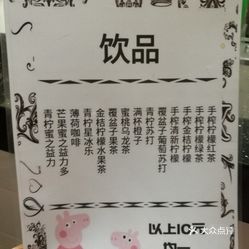 饮品
手榨柠檬红茶
手榨柠檬绿茶
手榨金桔柠檬
手榨清新柠檬
覆盆子葡萄苏打
青柠苏打
满杯橙子
蜜桃乌龙茶
覆盆子果茶
金桔柠檬水果茶
青柠星冰乐
薄荷咖啡
芒果蜜之益力多
青柠蜜之益力
以上10元
均一
大众点评